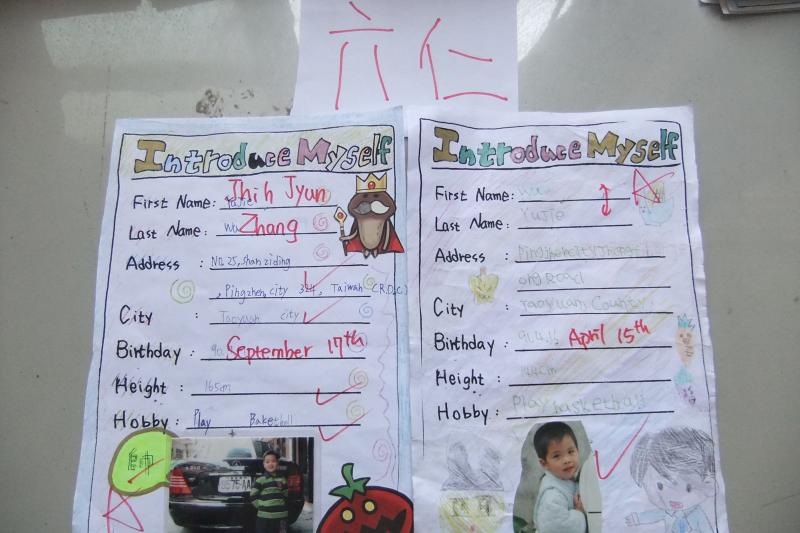 六仁
Introduce Myself
First Name: Jhih Jyun
Last Name: Zhang
Address : No. 25, shanziding
, Pingzhen city 324, Taiwan (R.O.C.)
City : Taoyuan city
Birthday : September 17th
Height : 165cm
Hobby : Play Baketball
帥
Introduce Myself
First Name: Wu
Last Name: Yujie
Address :
ong Road
City : Taoyuan County
Birthday : April 15th
Height : 144cm
Hobby: Play basketball